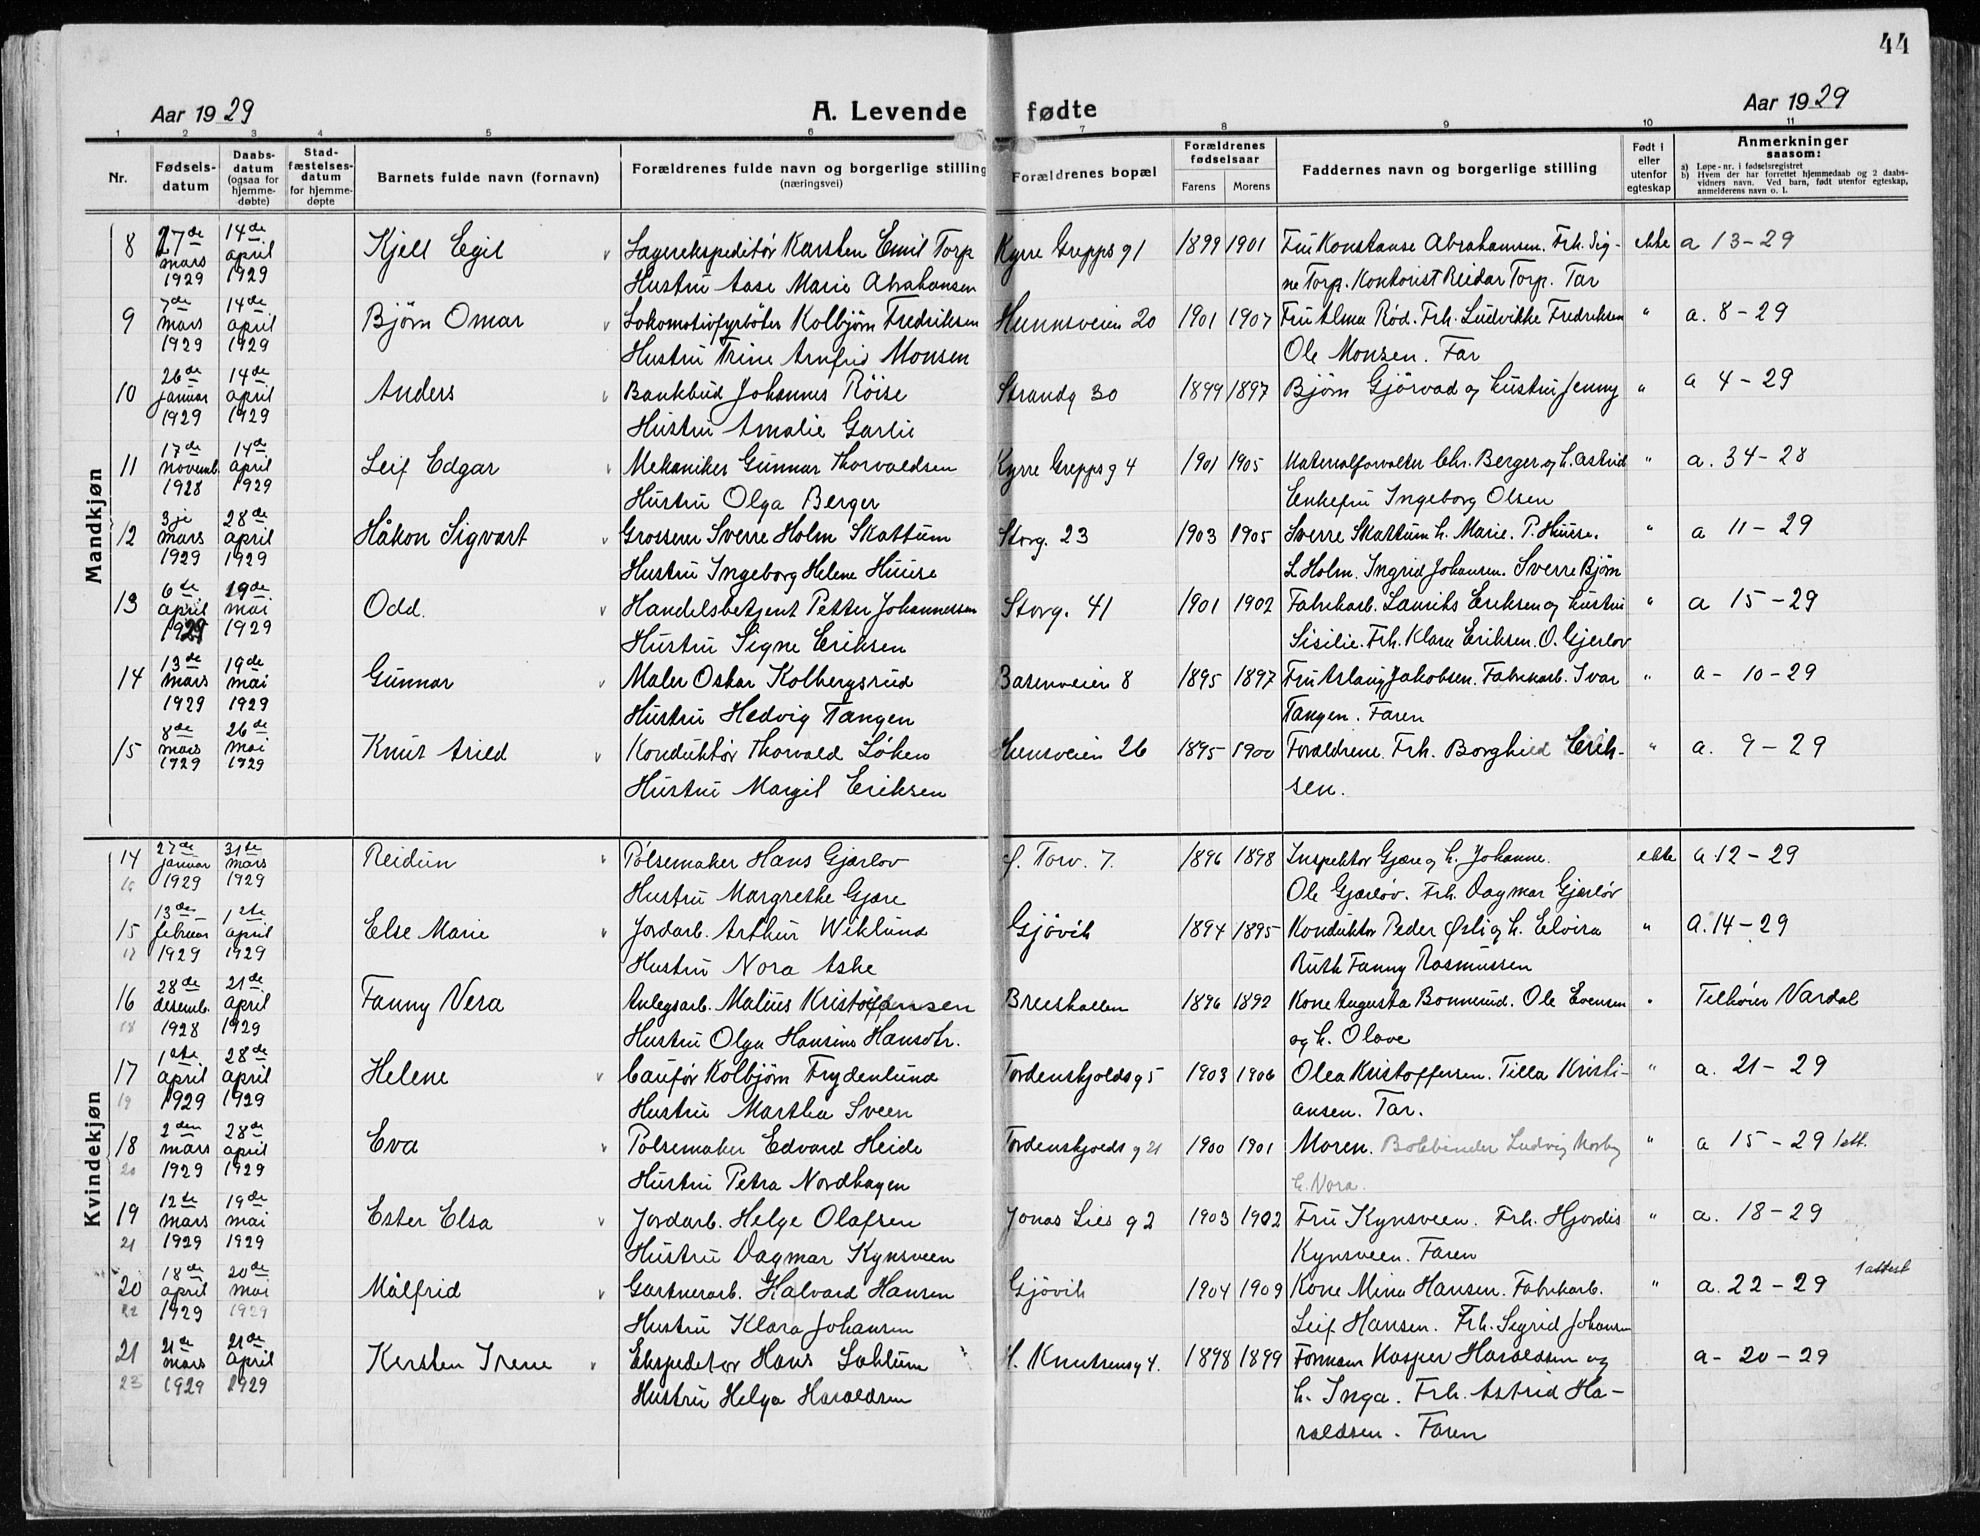 44
Aar 1929
A. Levende fødte
Aar 1929
1 2 3 4 5 6 7 8 9 10 11
Nr.
Fødsels-
datum
Daabs-
datum
(ogsaa for
hjemme-
døbte)
Stad-
fæstelses-
datum
for hjemme-
døpte
Barnets fulde navn (fornavn)
Forældrenes fulde navn og borgerlige stilling
(næringsvei)
Forældrenes bopæl
Forældrenes
fødselsaar
Farens Morens
Faddernes navn og borgerlige stilling
Født i
eller
utenfor
egteskap
Anmerkninger
saasom:
a) Løpe-nr. i fødselsregistret
b) Hvem der har forrettet hjemmedaab og 2 daabs-
vidners navn. Ved barn, født utenfor egteskap,
anmelderens navn o. l.
Mandkjøn
8 27de mars 1929 14de april 1929 Kjell Egil v Lagerekspeditør Karsten Emil Torp Kyrre Greppsg 1 1899 1901 Fru Konstanse Abrahamsen. Frk. Sig- ekte a 13-29
Hustru Aase Marie Abrahamsen ne Torp. Kontorist Reidar Torp. Far
9 7de mars 1929 14de april 1929 Bjørn Omar v Lokomotivfyrbøter Kolbjørn Fredriksen Hunnsveien 20 1901 1907 Fru Alma Rød. Frk. Ludvikke Fredriksen " a. 8-29
Hustru Trine Arnfrid Monsen Ole Monsen. Far
10 26de januar 1929 14de april 1929 Anders v Bankbud Johannes Røise Strandg 30 1899 1897 Bjørn Gjörvad og hustru Jenny " a 4-29
Hustru Amalie Garlie
11 17de novemb. 1928 14de april 1929 Leif Edgar v Mekaniker Gunnar Thorvaldsen Kyrre Greppsg 4 1901 1905 Materialforvalter Chr. Berger og h. Astrid " a. 34-28
Hustru Olga Berger Enkefru Ingeborg Olsen
12 3je mars 1929 28de april 1929 Håkon Sigvart v Grosserer Sverre Holm Skattum Storg. 23 1903 1905 Sverre Skattum h. Marie. P. Huuse. " a 11-29
Hustru Ingeborg Helene Huuse L Holm. Ingrid Johansen. Sverre Bjørn
13 6te april 1929 19de mai 1929 Odd. v Handelsbetjent Petter Johannessen Storg. 41 1901 1902 Fabrikarb. Laurits Eriksen og hustru " a 15-29
Hustru Signe Eriksen Sisilie. Frk. Klara Eriksen. O. Gjerlov
14 13de mars 1929 19de mai 1929 Gunnar v Maler Oskar Kolbergsrud Basenveien 8 1895 1897 Fru Aslaug Jakobsen. Fabrikarb. Ivar " a- 10-29
Hustru Hedvig Tangen Tangen. Faren
15 8de mars 1929 26de mai 1929 Knut Arild v Konduktør Thorvald Løken Hunsveien 26 1895 1900 Forældrene. Frk. Borghild Erik- " a. 9-29
Hustru Margit Eriksen sen.
Kvindekjøn
14 27de januar 1929 31te mars 1929 Reidun v Pølsemaker Hans Gjærlov f. Torv. 7. 1896 1898 Inspektør Gjære og h. Johanne. ekte a 12-29
16 Hustru Margrethe Gjære Ole Gjærløv. Frk. Dagmar Gjærløv
15 13de februar 1929 1ste april 1929 Else Marie v Jordarb. Arthur Wiklund Gjøvik 1894 1895 Konduktør Peder Øsli og h. Elvira " a. 14-29
17 Hustru Nora Aske Ruth Fanny Rasmussen
16 28de desemb. 1928 21de april 1929 Fanny Vera Anlegsarb. Malius Kristoffersen Breiskallen 1896 1892 Kone Augusta Bonnerud. Ole Evensen " Tilhører Vardal
18 Hustru Olga Hansine Hansdtr. og h. Olave
17 1ste april 1929 28de april 1929 Helene v Caufør Kolbjørn Frydenlund Tordenskjoldsg 5 1903 1906 Olea Kristoffersen. Tilla Kristi- " a. 21-29
19 Hustru Martha Sveen ansen. Far.
18 2den mars 1929 28de april 1929 Eva v Pølsemaker Edvard Heide Tordenskjoldsg 21 1900 1901 Moren. Bokbinder Ludvig Norby " a 15-29 1att.
20 Hustru Petra Nordhagen h. Nora.
19 12te mars 1929 19de mai 1929 Ester Elsa v Jordarb. Helge Olafsen Jonas Lies g 2 1903 1902 Fru Kynsveen. Frk. Hjørdis " a. 18-29
21 Hustru Dagmar Kynsveen Kynsveen. Faren
20 18de april 1929 20de mai 1929 Målfrid v Gartnerarb. Halvard Hansen Gjøvik 1904 1909 Kone Mina Hansen. Fabrikarb. " a. 22-29 1 attest
22 Hustru Klara Johansen Leif Hansen. Frk. Sigrid Johansen
21 21de mars 1929 21de april 1929 Kirsten Irene v Ekspeditør Hans Sahlum H. Knutsensg 4. 1898 1899 Formann Kasper Haraldsen og a- 20-29
23 Hustru Helga Haraldsen h. Inga. Frk. Astrid Ha-
raldsen. Faren